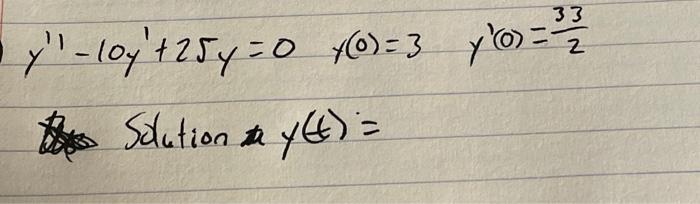 y'' - 10y' + 25y = 0 y(0) = 3 y'(0) = 33/2
Solution y(t) =